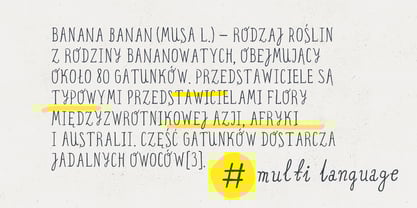 BANANA BANAN (MUSA L.) – RODZAJ ROŚLIN
Z RODZINY BANANOWATYCH, OBEJMUJĄCY
OKOŁO 80 GATUNKÓW. PRZEDSTAWICIELE SĄ
TYPOWYMI PRZEDSTAWICIELAMI FLORY
MIĘDZYZWROTNIKOWEJ AZJI, AFRYKI
I AUSTRALII. CZĘŚĆ GATUNKÓW DOSTARCZA
JADALNYCH OWOCÓW[3].
# multi language